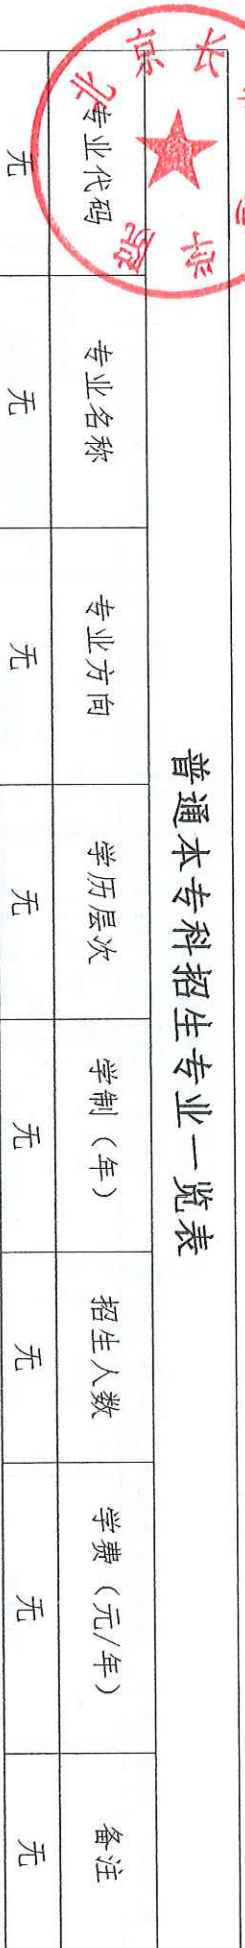 普通本专科招生专业一览表
专业代码 专业名称 专业方向 学历层次 学制（年） 招生人数 学费（元/年） 备注
无 无 无 无 无 无 无 无
北京长
学院